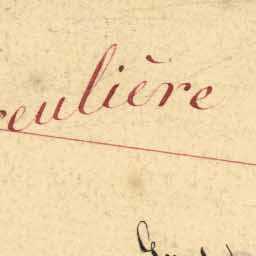 reulière